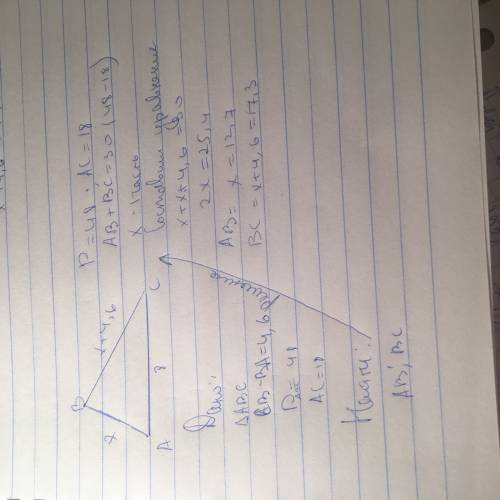 B
x
x+4,6
A
C
Дано:
ΔABC
BA=4,6
P = 48
AC=18
Найти:
AB, BC
Решение
P=48. AC=18
AB+BC=30 (48-18)
x - 1 часть
Составим уравнение
x+x+4,6=30
2x=25,4
AB= x=12,7
BC=x+4,6=17,3